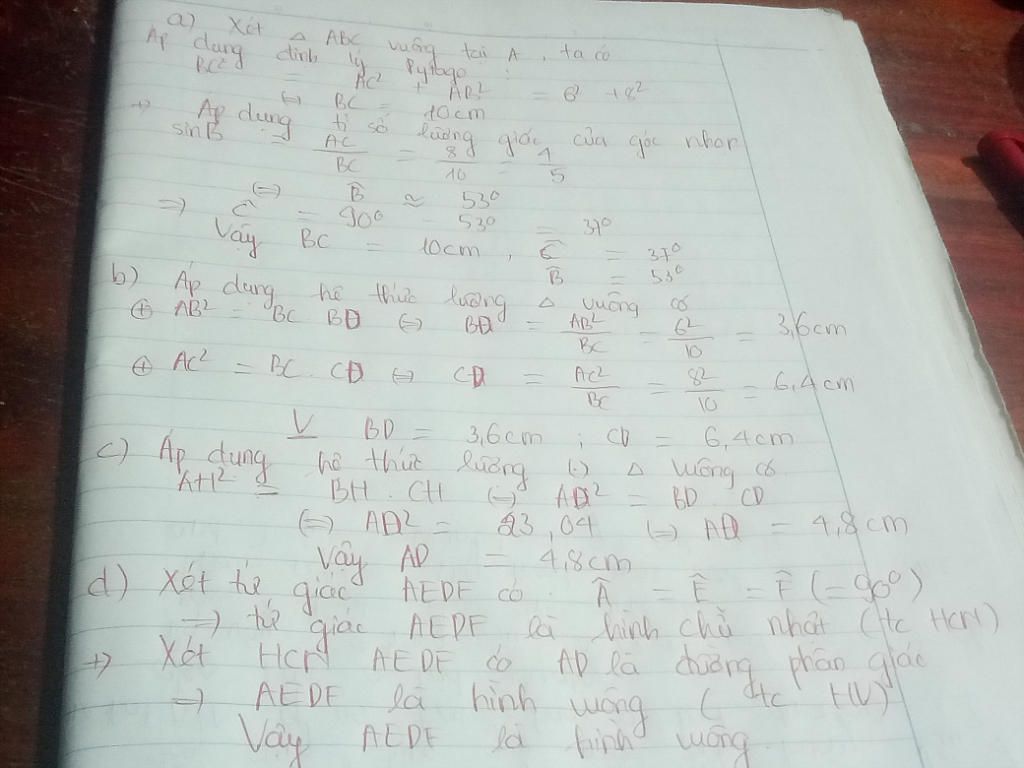 a) Xét △ ABC vuông tại A, ta có
Áp dụng định lý Pytago:
BC² = AC² + AB² = 6² + 8²
⇔ BC = 10cm
+) Áp dụng tỉ số lượng giác của góc nhọn
sinB = AC/BC = 8/10 = 4/5
⇔ B̂ ≈ 53°
⇒ Ĉ = 90° - 53° = 37°
Vậy BC = 10cm, Ĉ = 37°
B̂ = 53°
b) Áp dụng hệ thức lượng △ vuông có
⊕ AB² = BC BD ⇔ BD = AB²/BC = 6²/10 = 3,6cm
⊕ AC² = BC . CD ⇔ CD = AC²/BC = 8²/10 = 6,4cm
V BD = 3,6cm ; CD = 6,4cm
c) Áp dụng hệ thức lượng (.) △ vuông có
AH² = BH . CH ⇔ AD² = BD . CD
⇔ AD² = 23,04 ⇔ AD = 4,8cm
Vậy AD = 4,8cm
d) Xét tứ giác AEDF có Â = Ê = F̂ (= 90°)
⇒ tứ giác AEDF là hình chữ nhật (tc HCN)
+) Xét HCN AEDF có AD là đường phân giác
⇒ AEDF là hình vuông (tc HV)
Vậy AEDF là hình vuông.